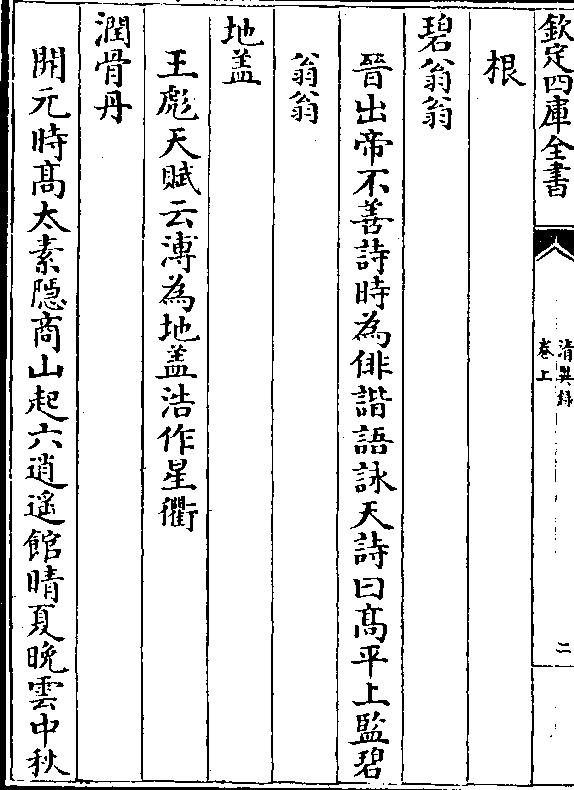 欽定四庫全書
清異錄
卷上
二
根
碧翁翁
晉出帝不善詩時為俳諧語詠天詩曰髙平上監碧
翁翁
地盖
王彪天賦云溥為地盖浩作星衢
潤骨丹
開元時髙太素隠商山起六逍遥館晴夏晚雲中秋